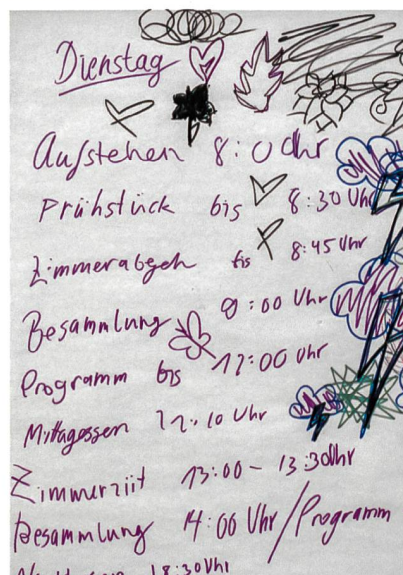 Dienstag
Aufstehen 8:00 Uhr
Frühstück bis 8:30 Uhr
Zimmerabgeh bis 8:45 Uhr
Besammlung 9:00 Uhr
Programm bis 12:00 Uhr
Mittagessen 12:10 Uhr
Zimmerziit 13:00 - 13:30 Uhr
Besammlung 14:00 Uhr / Programm
18:30 Uhr